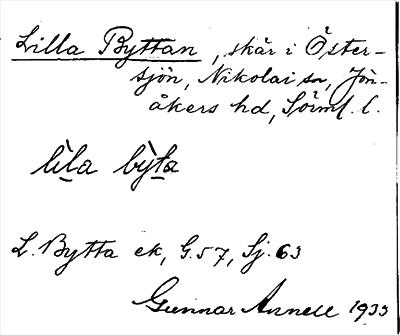 Lilla Byttan, skär i Öster-
sjön, Nikolai sn, Jön-
åkers hd, Söiml. l.
lìla bỳta
L. Bytta ek, G.57, Sj.63
Gunnar Annell 1933